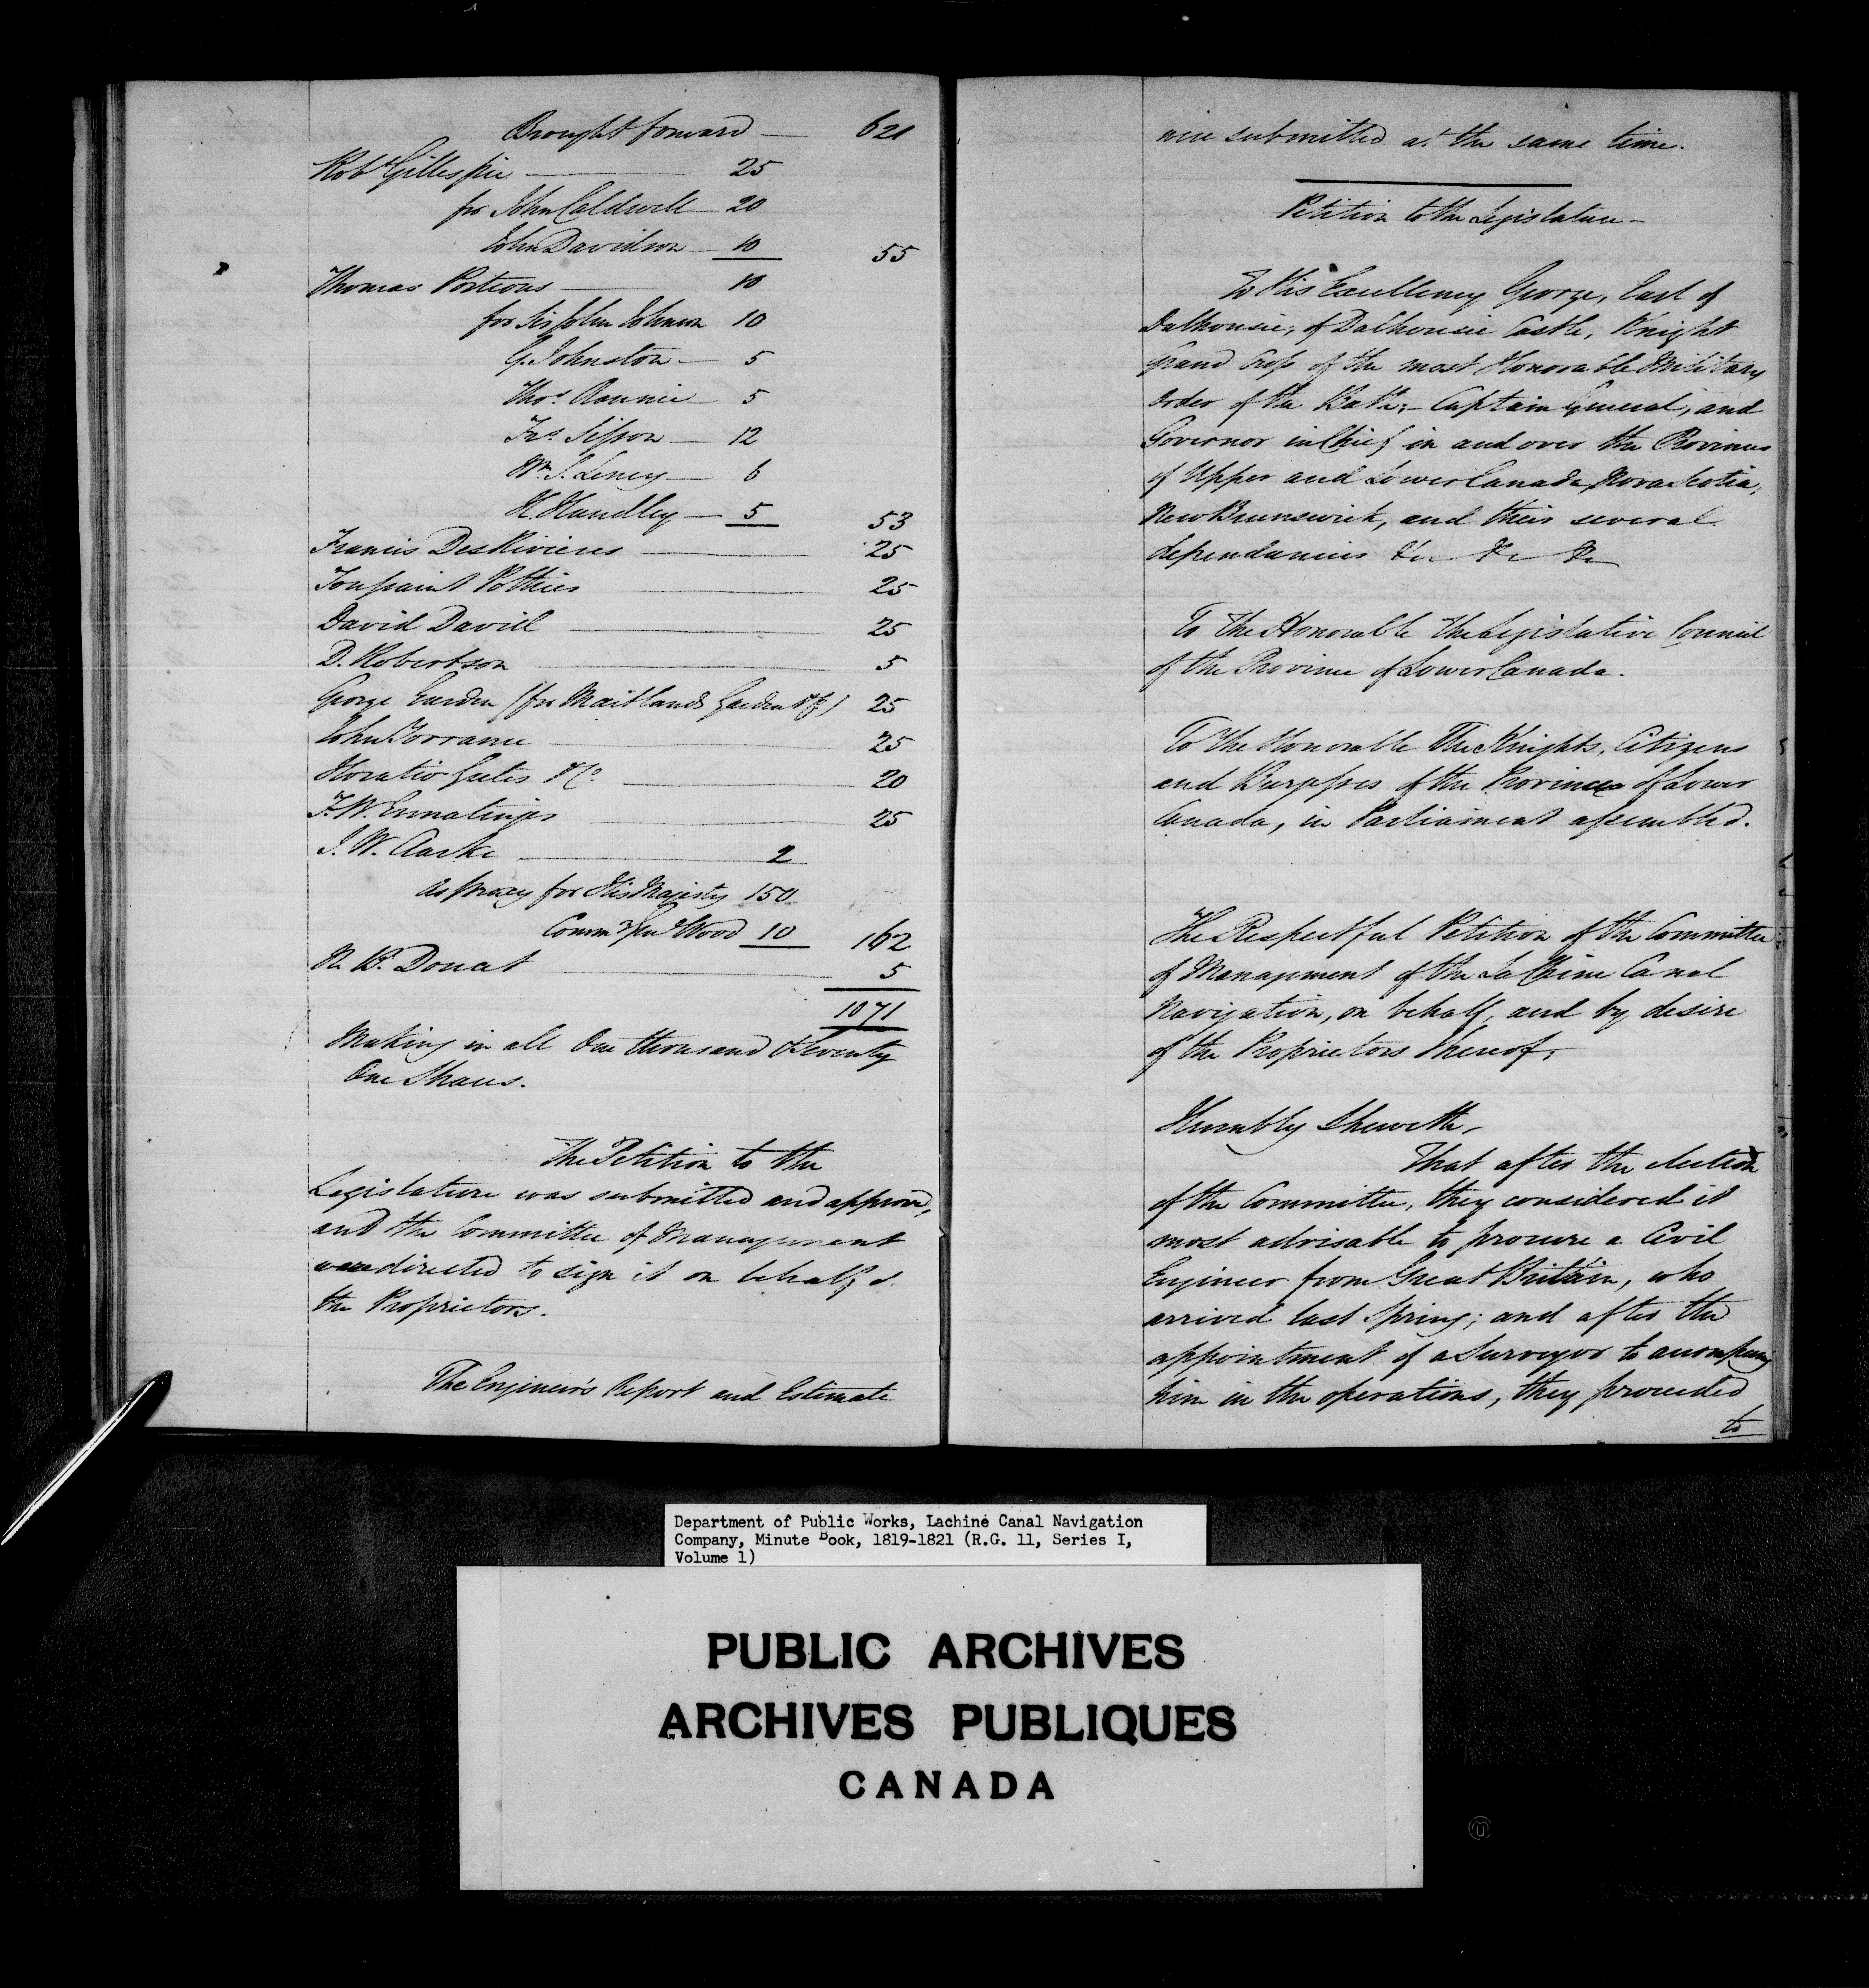 Brought forward — 621
Robt Gillespie — 25
for John Caldwell — 20
John Davidson — 10 55
Thomas Porteous — 10
for Sir John Johnson 10
G. Johnston — 5
Thos. — 5
Jno. Sisson — 12
Wm. S. Leney — 6
H. Handley — 5 53
Francis DesRivieres — 25
Toussaint Pothier — 25
David David — 25
D. Robertson — 5
George Garden (for Maitland Garden & Co) 25
John Torrance — 25
Horatio Gates & Co. — 20
F. W. Ermatinger — 25
J. W. Clarke — 2
As proxy for His Majesty 150
Commy Genl Wood 10 162
N. B. Doucet — 5
1071
Making in all One thousand & Seventy
One Shares.
The Petition to the
Legislature was submitted and approved,
and the Committee of Management
were directed to sign it on behalf of
the Proprietors.
The Engineer's Report and Estimate
were submitted at the same time.
Petition to the Legislature —
To His Excellency George, Earl of
Dalhousie, of Dalhousie Castle, Knight
Grand Cross of the most Honorable Military
Order of the Bath; — Captain General, and
Governor in Chief in and over the Provinces
of Upper and Lower Canada, Nova Scotia,
New Brunswick, and their several
dependancies &c &c &c
To The Honorable The Legislative Council
of the Province of Lower Canada.
To The Honorable The Knights, Citizens
and Burgesses of the Province of Lower
Canada, in Parliament assembled.
The Respectful Petition of the Committee
of Management of the La Chine Canal
Navigation, on behalf, and by desire
of the Proprietors thereof;
Humbly Sheweth,
That after the election
of the Committee, they considered it
most advisable to procure a Civil
Engineer from Great Britain, who
arrived last Spring; and after the
appointment of a Surveyor to accompany
him in the operations, they proceeded
to
Department of Public Works, Lachine Canal Navigation
Company, Minute Book, 1819-1821 (R.G. 11, Series I,
Volume 1)
PUBLIC ARCHIVES
ARCHIVES PUBLIQUES
CANADA